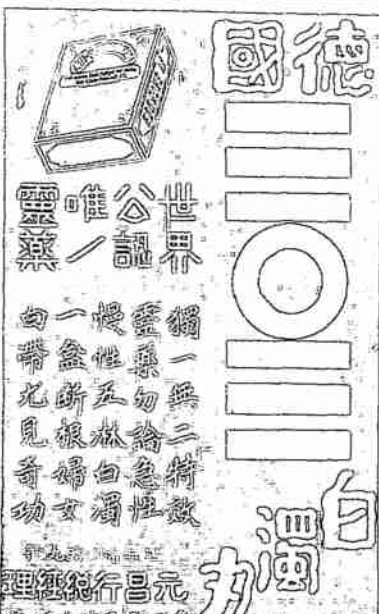 德國
三〇三
白濁丸
世界
公認
唯一
靈藥
獨一無二特效
靈藥勿論急性
慢性五淋白濁
一盒斷根婦女
白帶尤見奇功
元昌行總經理